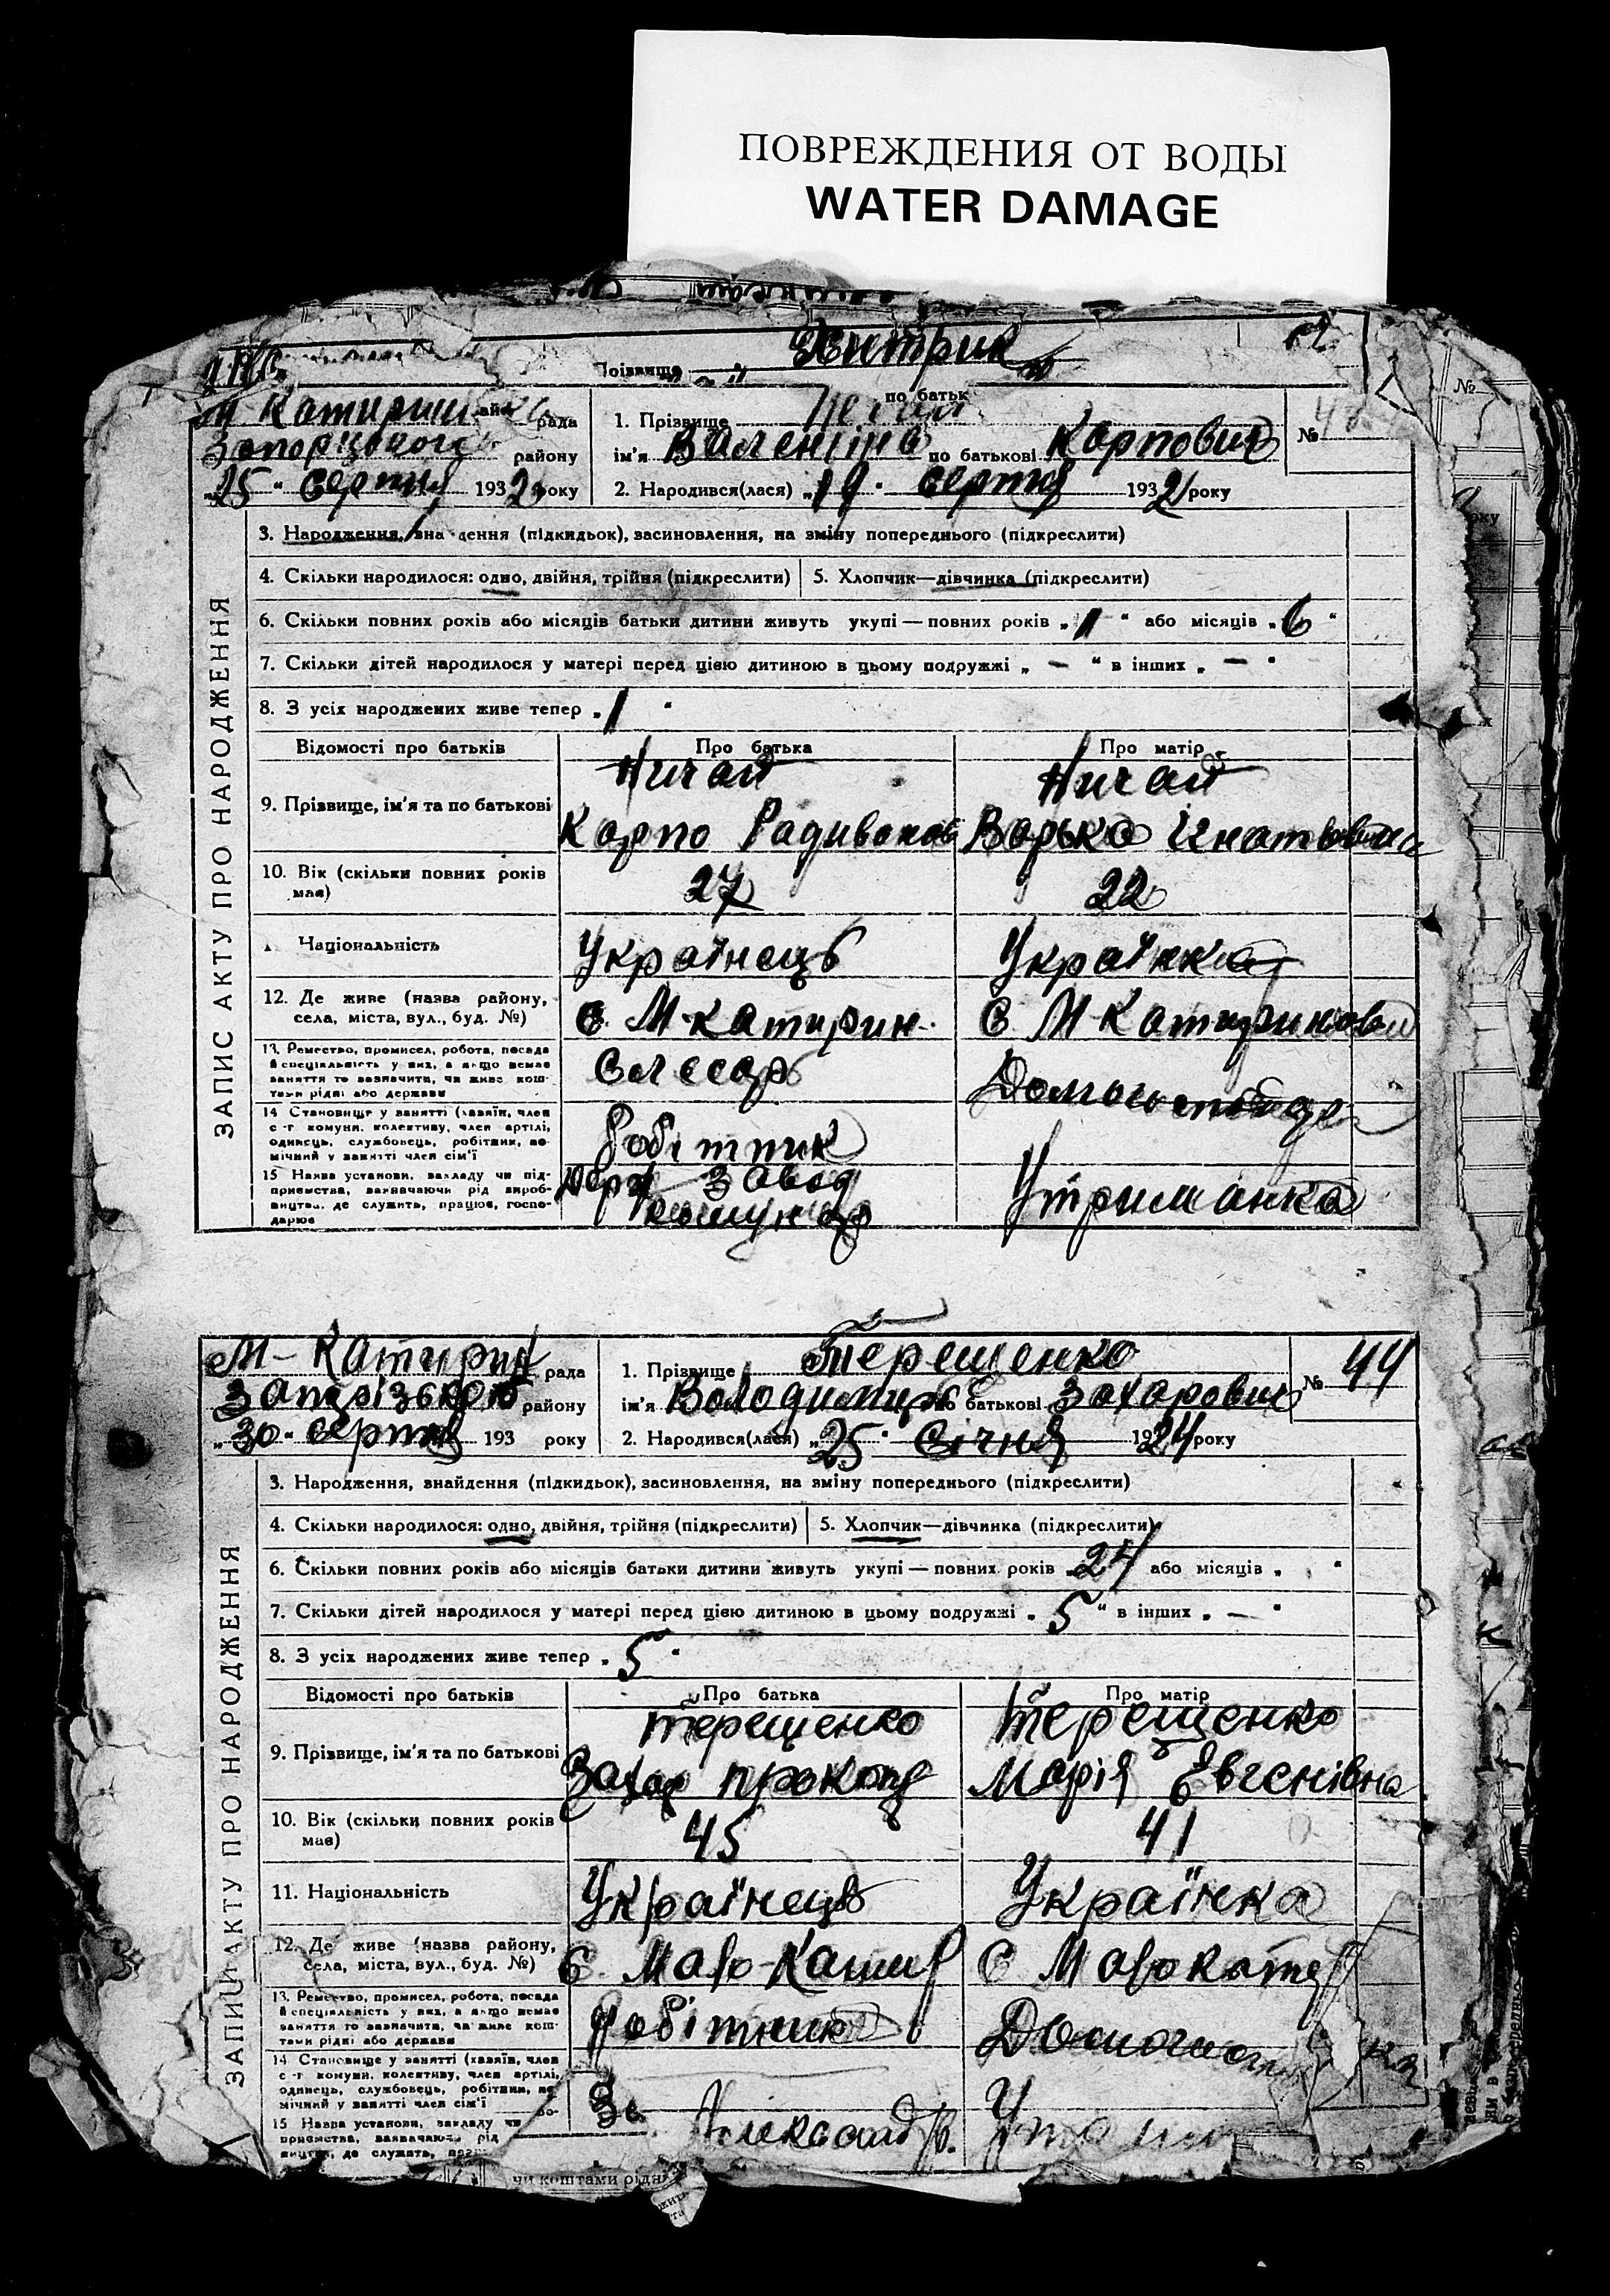 ПОВРЕЖДЕНИЯ ОТ ВОДЫ
WATER DAMAGE
Хитрик
М Катирин рада
1. Прізвище
по батьк
№
Запоріцького району
ім'я Валентіна по батькові Карповна
„25“ серпня 1932 року
2. Народився(лася) „19“ серпня 1932 року
ЗАПИС АКТУ ПРО НАРОДЖЕННЯ
3. Народження, зна дення (підкидьок), засиновлення, на зміну попереднього (підкреслити)
4. Скільки народилося: одно, двійня, трійня (підкреслити)
5. Хлопчик—дівчинка (підкреслити)
6. Скільки повних років або місяців батьки дитини живуть укупі — повних років „1“ або місяців „6“
7. Скільки дітей народилося у матері перед цією дитиною в цьому подружжі „—“ в інших „—“
8. З усіх народжених живе тепер „1“
Відомості про батьків
Про батька
Про матір
9. Прізвище, ім'я та по батькові
Ничай
Карпо Радивонов
Ничай
Варька Ігнатовна
10. Вік (скільки повних років має)
27
22
Національність
Українець
Українка
12. Де живе (назва району, села, міста, вул., буд. №)
С. М-Катирин.
С М Катиринов
13. Ремество, промисел, робота, посада й спеціальність у них, а якщо немає заняття то зазначити, чи живе коштами рідні або держави
Слєсарь
14 Становище у занятті (хазяїн, член с-г комуни, колективу, член артілі, одинець, службовець, робітник, помічний у занятті член сім'ї
Робітник
15 Назва установи, закладу чи підприємства, зазначаючи рід виробництва, де служить, працює, господарює
завод
Комунар
Утриманка
М-Катирин рада
1. Прізвище Терещенко
№ 44
Запорізького району
ім'я Володимир по батькові Захарович
„30“ серпня 193 року
2. Народився(лася) „25“ Січня 1924 року
ЗАПИС АКТУ ПРО НАРОДЖЕННЯ
3. Народження, знайдення (підкидьок), засиновлення, на зміну попереднього (підкреслити)
4. Скільки народилося: одно, двійня, трійня (підкреслити)
5. Хлопчик—дівчинка (підкреслити)
6. Скільки повних років або місяців батьки дитини живуть укупі — повних років „24 або місяців „ “
7. Скільки дітей народилося у матері перед цією дитиною в цьому подружжі „5“ в інших „—“
8. З усіх народжених живе тепер „5“
Відомості про батьків
Про батька
Про матір
9. Прізвище, ім'я та по батькові
Терещенко
Захар Прокоп
Терещенко
Марія Євгєнівна
10. Вік (скільки повних років має)
45
41
11. Національність
Українець
Українка
12. Де живе (назва району, села, міста, вул., буд. №)
С. Мало-Катир
С Мало Кате
13. Ремество, промисел, робота, посада й спеціальність у них, а якщо немає заняття то зазначити, чи живе коштами рідні або держави
Робітник
14. Становище у занятті (хазяїн, член с-г комуни, колективу, член артілі, одинець, службовець, робітник, помічний у занятті член сім'ї
15 Назва установи, закладу чи
приємства, зазначаючи рід
де служить,
чи коштами рідні